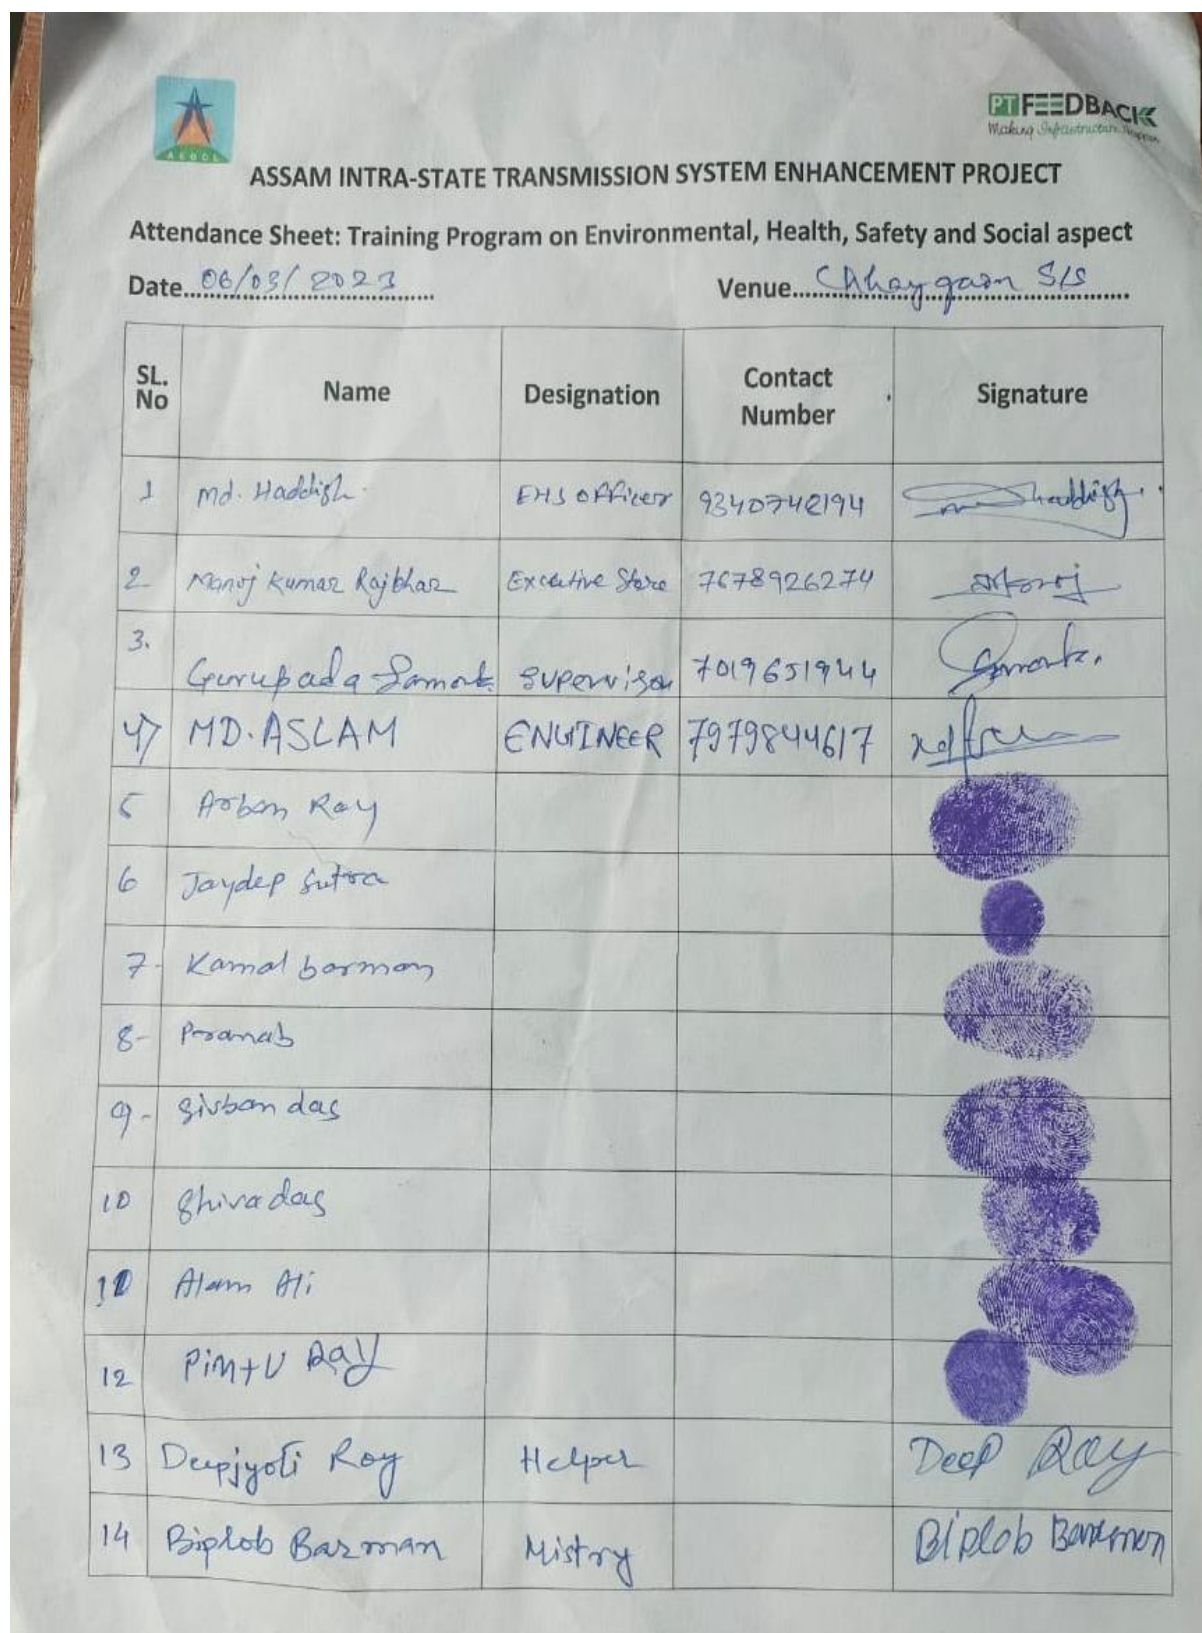 AEGCL
PT FEEDBACK
Making Infrastructure Happen
ASSAM INTRA-STATE TRANSMISSION SYSTEM ENHANCEMENT PROJECT
Attendance Sheet: Training Program on Environmental, Health, Safety and Social aspect
Date 06/03/2023 Venue Chhaygaon S/S
SL. No Name Designation Contact Number Signature
1 Md. Haddish. EHS Officer 9340742194 Haddish
2 Manoj Kumar Rajbhar Executive Store 7678926274
3. Gurupada Samont Supervisor 7019651944
4) MD. ASLAM ENGINEER 7979844617
5 Arban Ray
6 Jaydep Sutra
7- Kamal barman
8- Pranab
9- Sisban das
10 Shiva das
11 Alam Ali
12 PiNtU RaY
13 Deepjyoti Roy Helper Deep Roy
14 Biplob Barman Mistry Biplob Barman